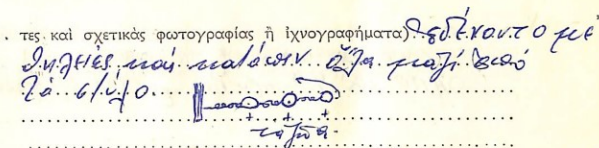 τες καὶ σχετικὰς φωτογραφίας ἢ ἰχνογραφήματα) Ἐδένοντο μὲ
θηλειὲς καὶ κατόπιν ὅλα μαζὶ ἀπὸ
τὸ στύλο
τὰ ζῶα